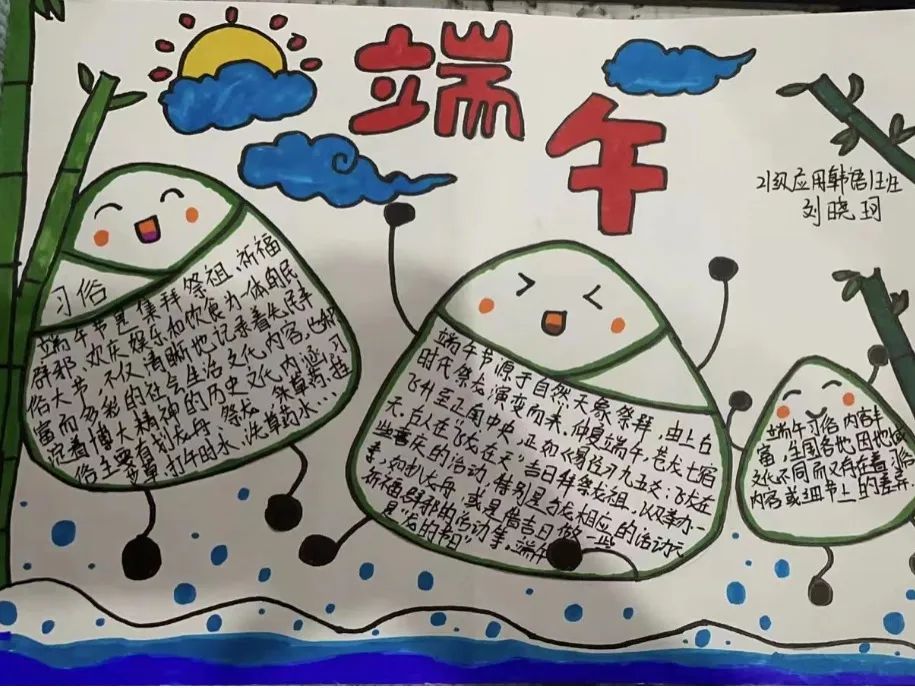 端
午
21级应用韩语1班
刘晓玥
习俗
端午节是集拜祭祖、祈福
辟邪、欢庆娱乐和饮食为一体的民
俗大节,不仅清晰地记录着先民丰
富而多彩的社会生活文化内容,也
沉着博大精神的历史文化内涵。习
俗主要有划龙舟、祭龙、采草药、挂
艾草、打午时水、洗草药水…
端午节源于自然天象祭拜,由上古
时代祭龙演变而来。仲夏端午,苍龙七宿
飞升至正南中央,正如《易经》九五爻:"飞龙在
天"。古人在"飞龙在天"吉日拜祭龙祖,以及举办一
些喜庆的活动,特别是与龙相应的活动元
素,如扒龙舟,或是借吉日做一些
祈福、辟邪的活动事。端午
是"龙的节日"
端午习俗内容丰
富,全国各地因地域
文化不同而又存在着习俗
内容或细节上的差异